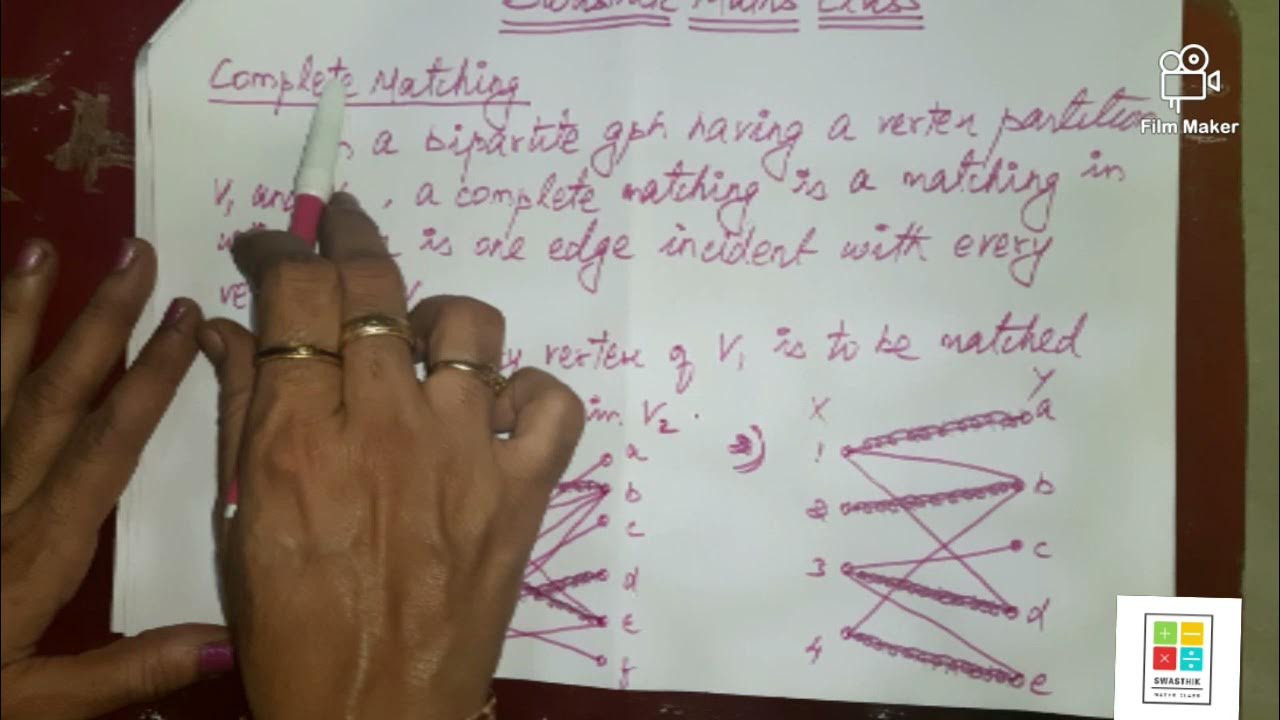 Swasthik Maths Class
Film Maker
Complete Matching
a bipartite gph having a vertex partition
V₁ and , a complete matching is a matching in
is one edge incident with every
vertex of V₁ is to be matched
in V₂.
X Y
2)
1 a
2 b
3 c
4 d
e
a
b
c
d
e
f
SWASTHIK
MATHS CLASS